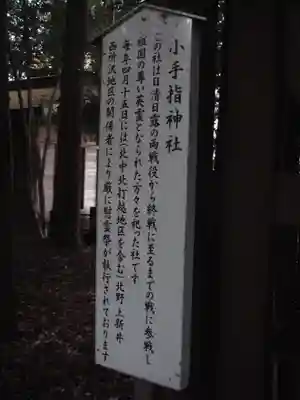 小手指神社
この社は日清日露の両戦役から終戦に至るまでの戦に参戦し
祖国の尊い英霊となられた方々を祀った社です
毎年四月十五日には(北中北打越地区を含む)北野上新井
西所沢地区の関係者により厳に慰霊祭が執行されております